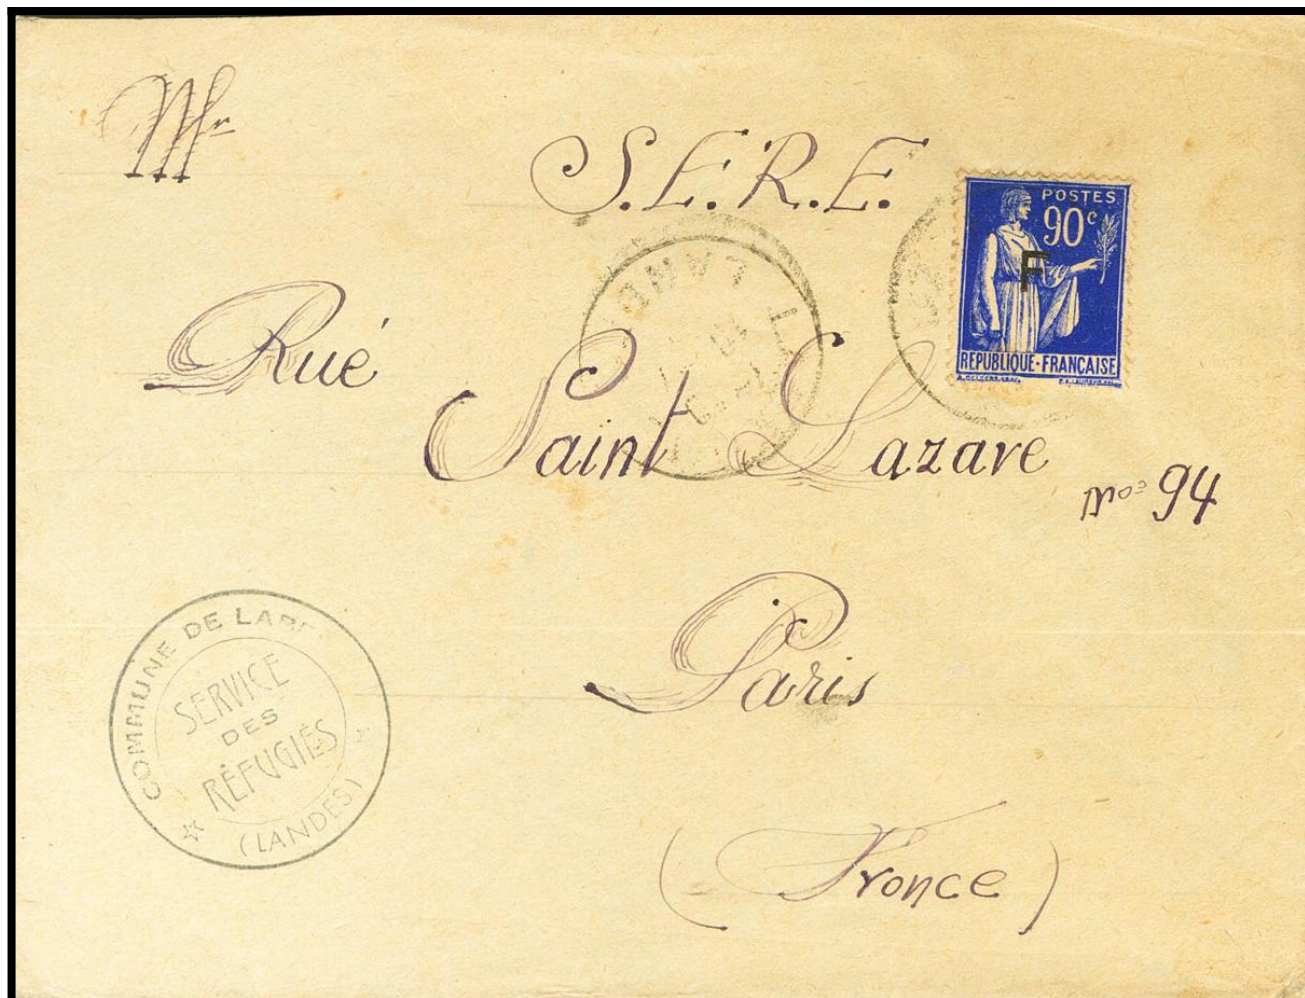 Mr
S.E.R.E.
POSTES
90c
F
REPUBLIQUE·FRANÇAISE
LAND
Rué
Saint Lazare
no= 94
Paris
(Fronce)
COMMUNE DE
SERVICE
DES
RÉFUGIÉS
(LANDES)